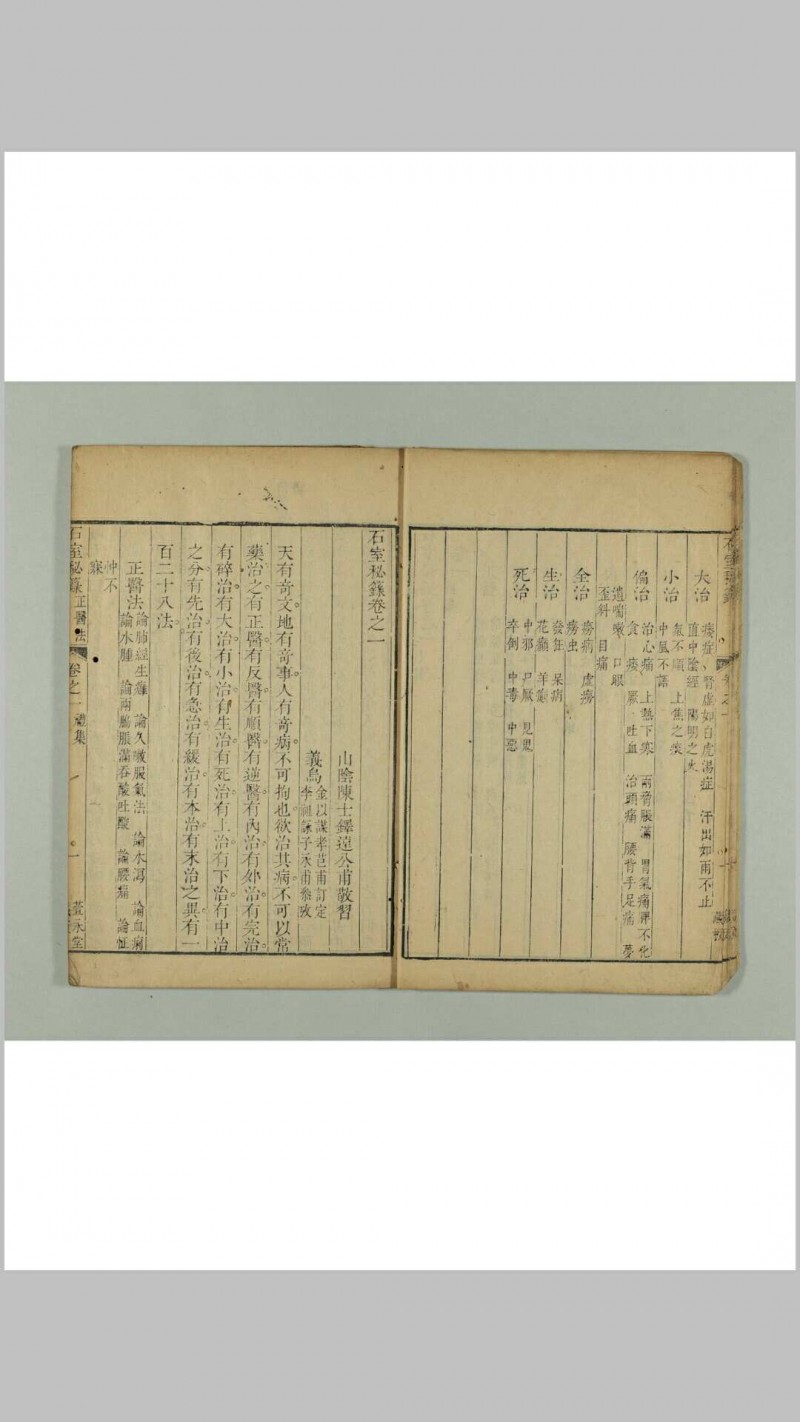 大治 痿症 腎虛如白虎湯症 汗出如雨不止
直中陰經 陽明之火
小治 氣不順 上焦之痰
中風不語
偏治 治心痛 上熱下寒 兩脅脹滿 胃氣痛脾不化
食 痰 厥 吐血 治頭痛 腰背手足痛 夢
遺喘嗽 口眼
歪斜 目痛
全治 癆病 虛癆
癆虫
生治 發狂 呆病
花癲 羊癲
死治 中邪 尸厥 見鬼
卒倒 中毒 中惡
石室秘籙卷之一
山陰陳士鐸遠公甫敬習
義烏 金以謀孝芑甫訂定
李祖詠子永甫參攷
天有奇文地有奇事人有奇病不可拘也欲治其病不可以常
藥治之有正醫有反醫有順醫有逆醫有內治有外治有完治
有碎治有大治有小治有生治有死治有上治有下治有中治
之分有先治有後治有急治有緩治有本治有末治之異有一
百二十八法
正醫法 論肺經生癰 論久嗽服氣法 論水瀉 論血痢
論水腫 論兩脅脹滿吞酸吐酸 論腰痛 論怔
忡不
寐
石室秘籙 正醫法 卷之一 禮集 一 萱永堂